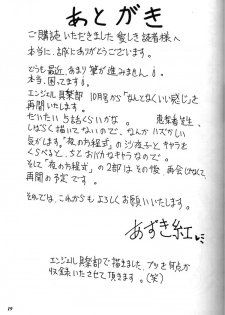 あとがき
ご購読いただきました愛しき読者様へ
本当に、誠にありがとうございます。
どうも最近、あまり筆が進みません。
本当、困ってます。
エンジェル倶楽部 10月号から「なんとなくいい感じ」を
再開いたします。
だいたい 5話くらいかな。
しばらく描いてないので、なんか ハズかしい
気がします。「夜の方程式」の沙夜子とキャラを
くらべると、ちとおバカなキャラなので。
そして「夜の方程式」の2部はその後 再会じゃなくて、
再開の予定です。
それでは、これからも よろしくお願いいたします。
あずき紅
エンジェル倶楽部で描きました、アツを何点か
収録いたさせて頂きます。(笑)